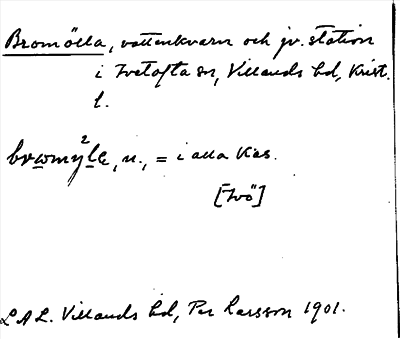 Bromölla, vattenkvarn och jv. station
i Ivetofta sn, Villands hd, Krist.
l.
bromy²le, n., = i alla kas.
[Ivö]
LAL. Villands hd, Per Larsson 1901.